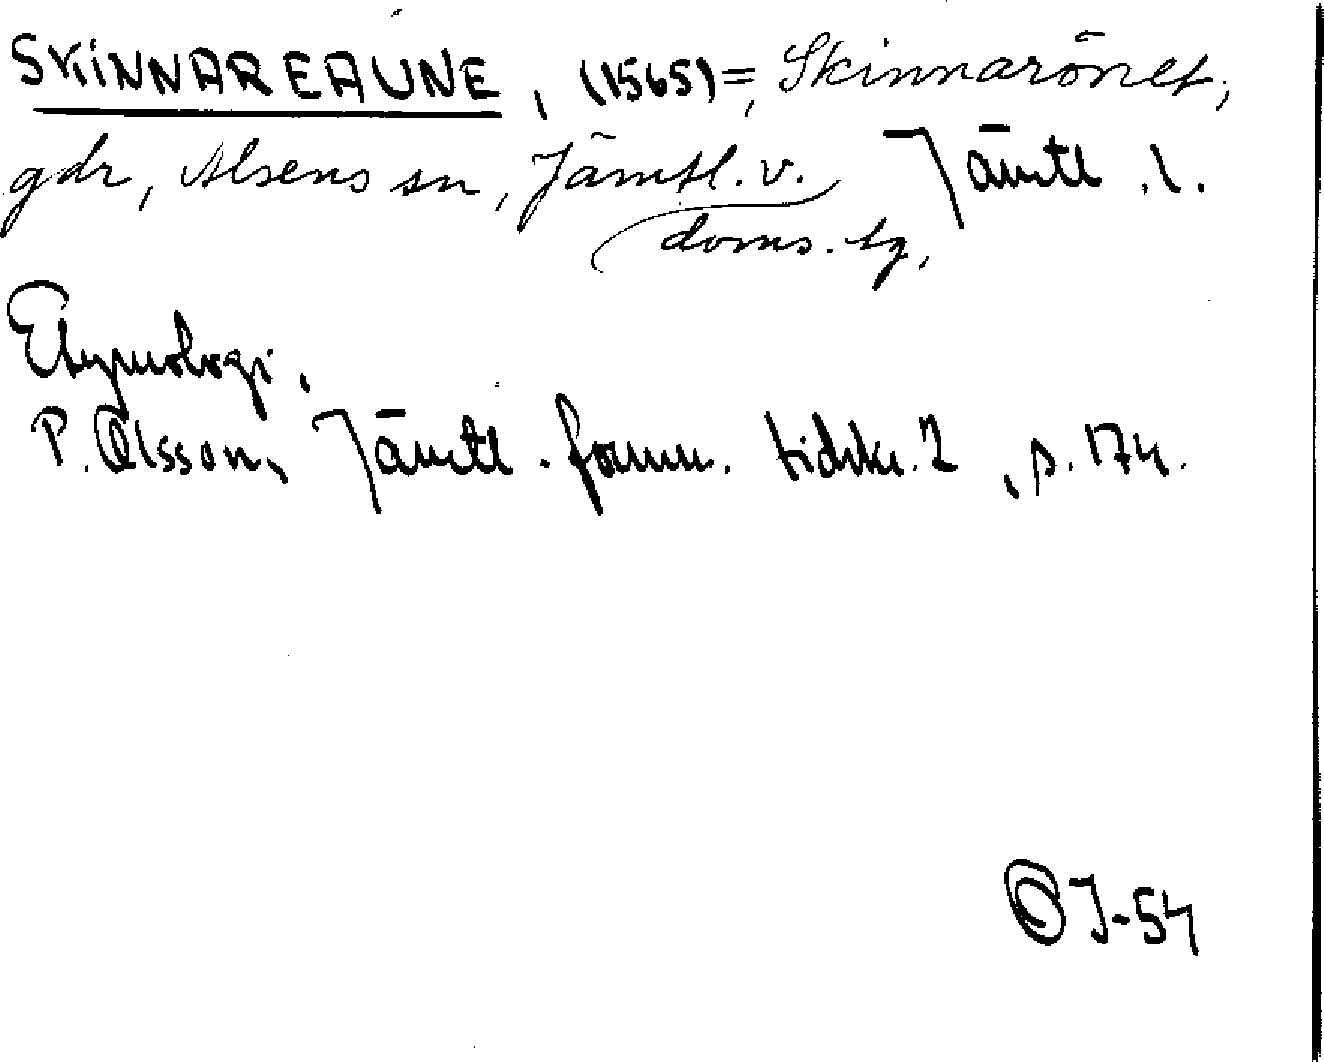 SKINNAREAUNE, (1565) =, Skinnarönet,
gdr, Alsens sn, Jämtl. v. Jämtl. l.
doms. sg,
Etymologi.
P. Olsson, Jämtl. fornm. tidskr. 2, s. 174.
OJ-54